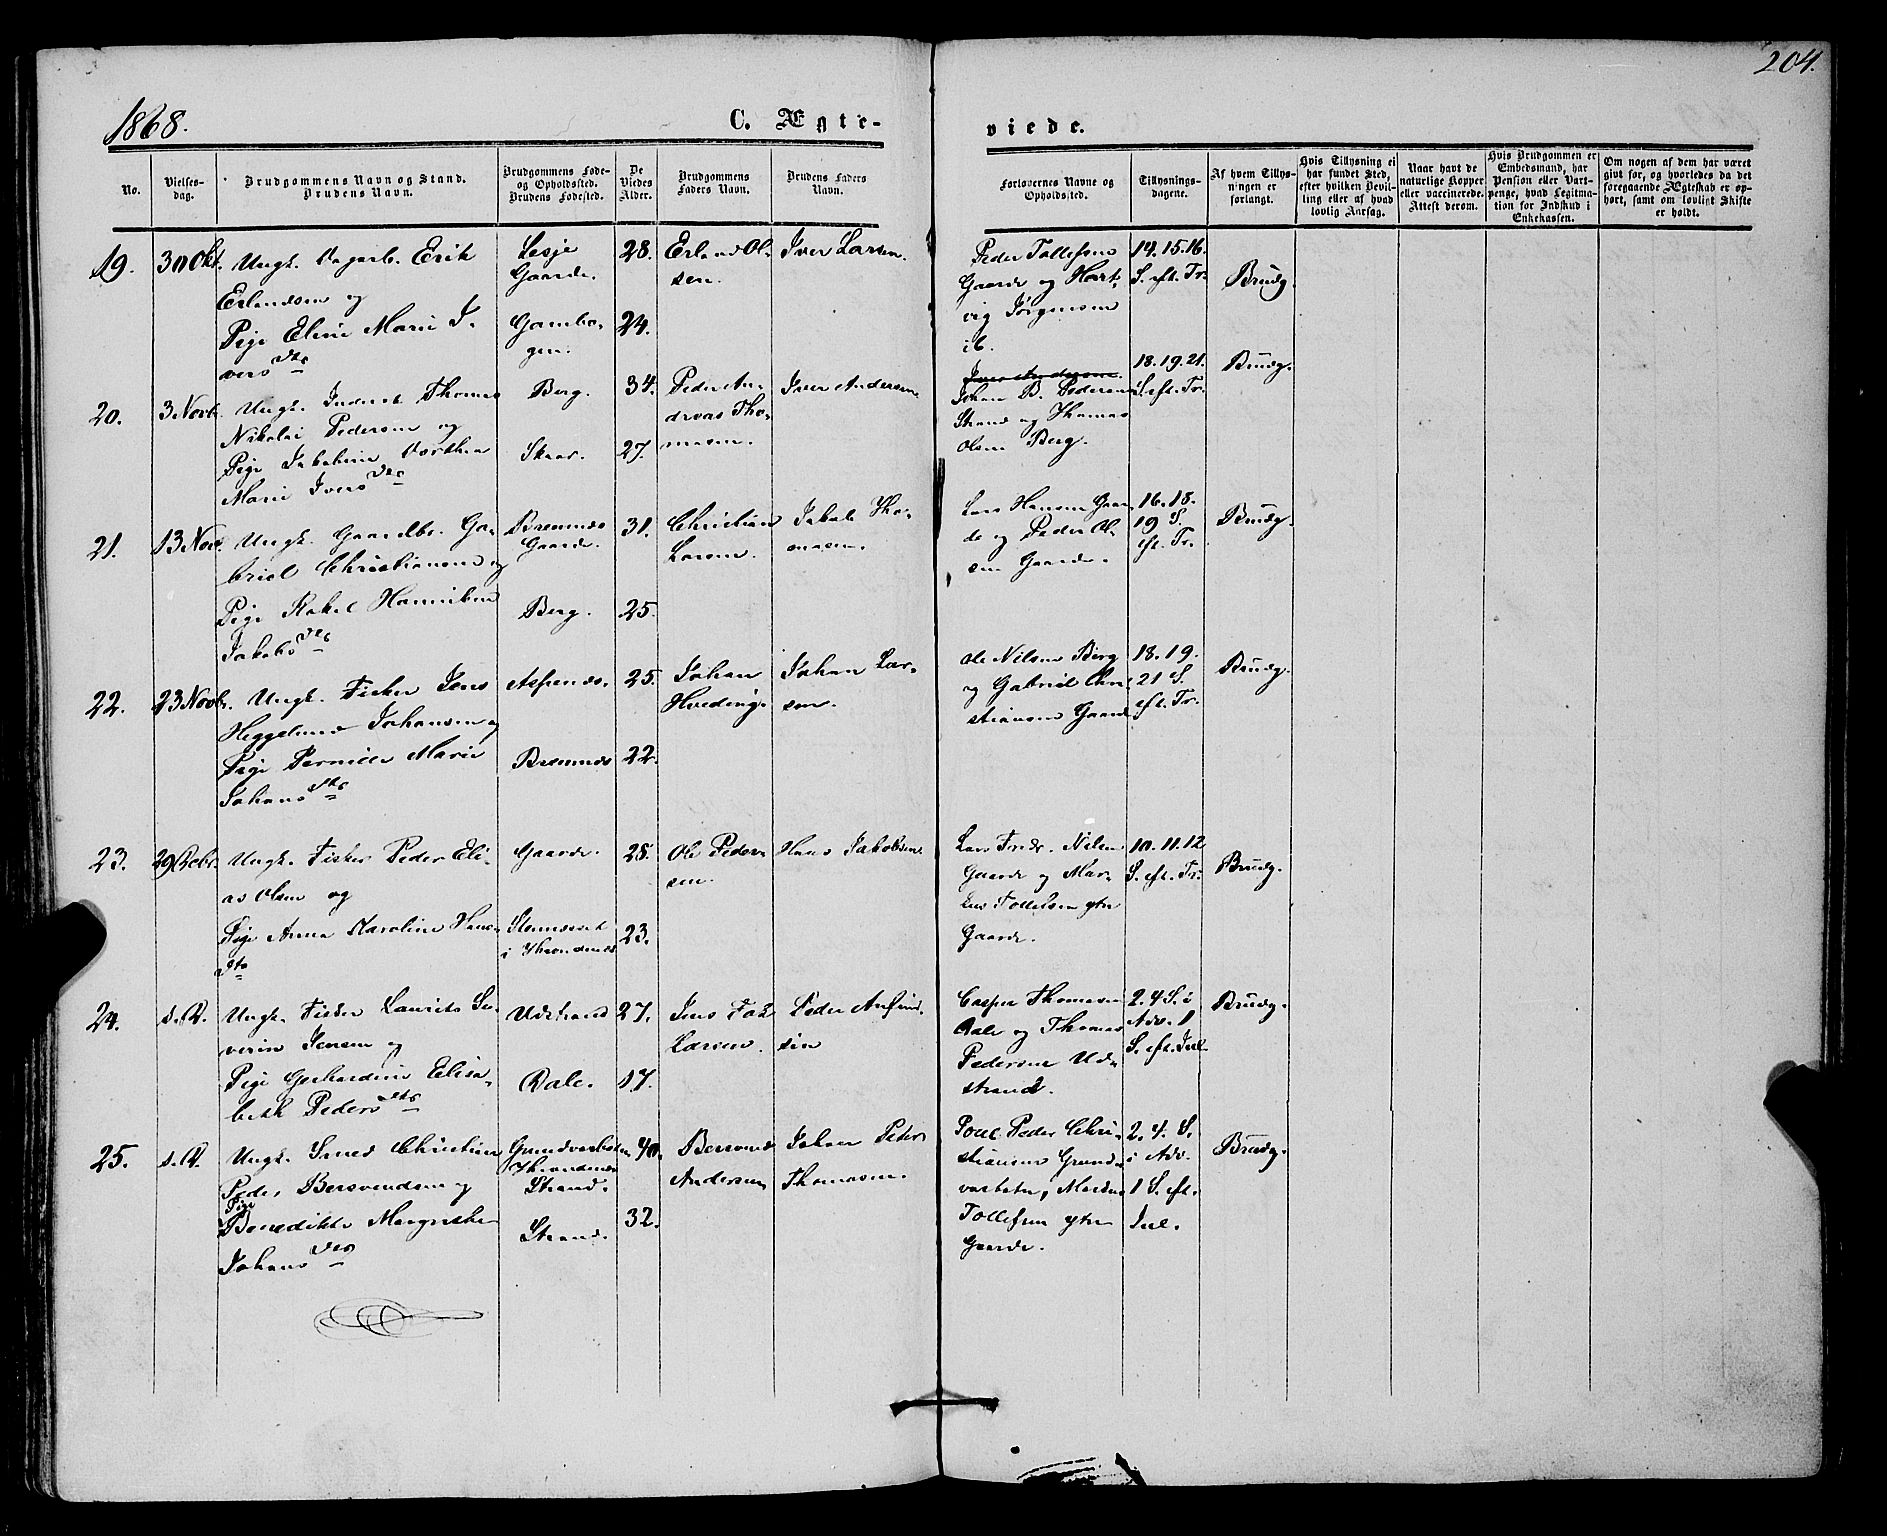 204.
1868.
C. Ægte-
viede.
No.
Vielses-
dag.
Brudgommens Navn og Stand.
Brudens Navn.
Brudgommens Føde-
og Opholdssted.
Brudens Fødested.
De
Viedes
Alder.
Brudgommens
Faders Navn.
Brudens Faders
Navn.
Forlovernes Navne og
Opholdssted.
Tillysnings-
dagene.
Af hvem Tillys-
ningen er
forlangt.
Hvis Tillysning ei
har fundet Sted,
efter hvilken Bevil-
ling eller af hvad
lovlig Aarsag.
Naar havt de
naturlige Kopper
eller vaccinerede.
Attest derom.
Hvis Brudgommen er
Embedsmand, har
Pension eller Vart-
penge, hvad Legitima-
tion for Indskud i
Enkekassen.
Om nogen af dem har været
givt før, og hvorledes da det
foregaaende Ægteskab er op-
hørt, samt om lovligt Skifte
er holdt.
19.
30 Okt.
Ungk. Erik
Erlandsen og
Pige Eline Marie I-
vers Dtr
Lesje
Gaarde.
28.
24.
Erland Ol-
sen.
Iver Larsen.
Peder Tollefsen
Gaarde og Hart-
vig Jørgensen
ib.
14. 15. 16.
S. eft. Tr.
Brudg.
20.
3 Novb.
Ungk. Inderst Thomas
Nikolai Pedersen og
Pige Jakobine Dorthea
Marie Ivers Dtr
Berg.
Skaar.
34.
27.
Peder An-
dreas Tho-
masen.
Iver Andersen
Iver Andersen
Johan B. Pedersen
Strand og Thomas
Olsen Berg.
18. 19. 21.
S. eft. Tr.
Brudg.
21.
13 Nov.
Ungk. Gaardbr. Ga-
briel Christiansen og
Pige Rakel Hannibine
Jakobs Dtr
Bremnæs
Gaarde.
Berg.
31.
25.
Christian
Larsen.
Jakob Tho-
masen.
Lars Hansen Gaar-
de og Peder Ol-
sen Gaarde.
16. 18.
19 S.
eft. Tr.
Brudg.
22.
23 Novb.
Ungk. Fisker Jens
Heggelund Johansen og
Pige Pernille Marie
Johans Dtr
Aspenæs.
Bremnæs
25.
22.
Johan
Hveding.
Johan Lar-
sen.
Ole Nilsen Berg
og Gabriel Chri-
stiansen Gaarde
18. 19.
21 S.
eft. Tr.
Brudg.
23.
29 Decbr.
Ungk. Fisker Peder Eli-
as Olsen og
Pige Anna Karoline Hans-
Dtr
Gaarde.
i Throndenæs
28.
23.
Ole Peder-
sen.
Hans Jakobsen
Lars Fredr. Nilsen
Gaarde og Mar-
kus Tollefsen ytre
Gaarde.
10. 11. 12
S. eft. Tr.
Brudg.
24.
s. D.
Ungk. Fisker Laurits Se-
verin Jensen og
Pige Gerhardine Elisa-
beth Peders Dtr
Udstrand
Dale.
27.
17.
Jens Fal
Larsen.
Peder Anfind-
sen
Casper Thomasen
Dale og Thomas
Pedersen Ud-
strand.
2. 4 S. i
Adv. 1
S. eft. Jul
Brudg.
25.
s. D.
Ungk. Smed Christian
Peder Bersvendsen og
Pige
Benedikte Margrethe
Johans Dtr
Throndenæs
Strand.
Strand.
40.
32.
Bersvend
Andersen
Johan Peter
Thomasen.
Poul Peder Chri-
stiansen Grund-
vasbotn, Markus
Tollefsen ytre
Gaarde.
2. 4. S.
i Adv.
1 S. eft.
Jul.
Brudg.